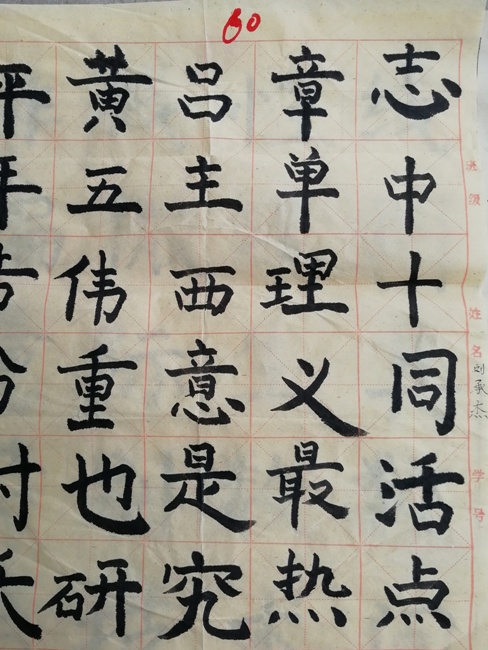 60
班级 姓名 刘承杰 学号
志中十同活点
章单理义最热
吕主西意是究
黄五伟重也研
平年